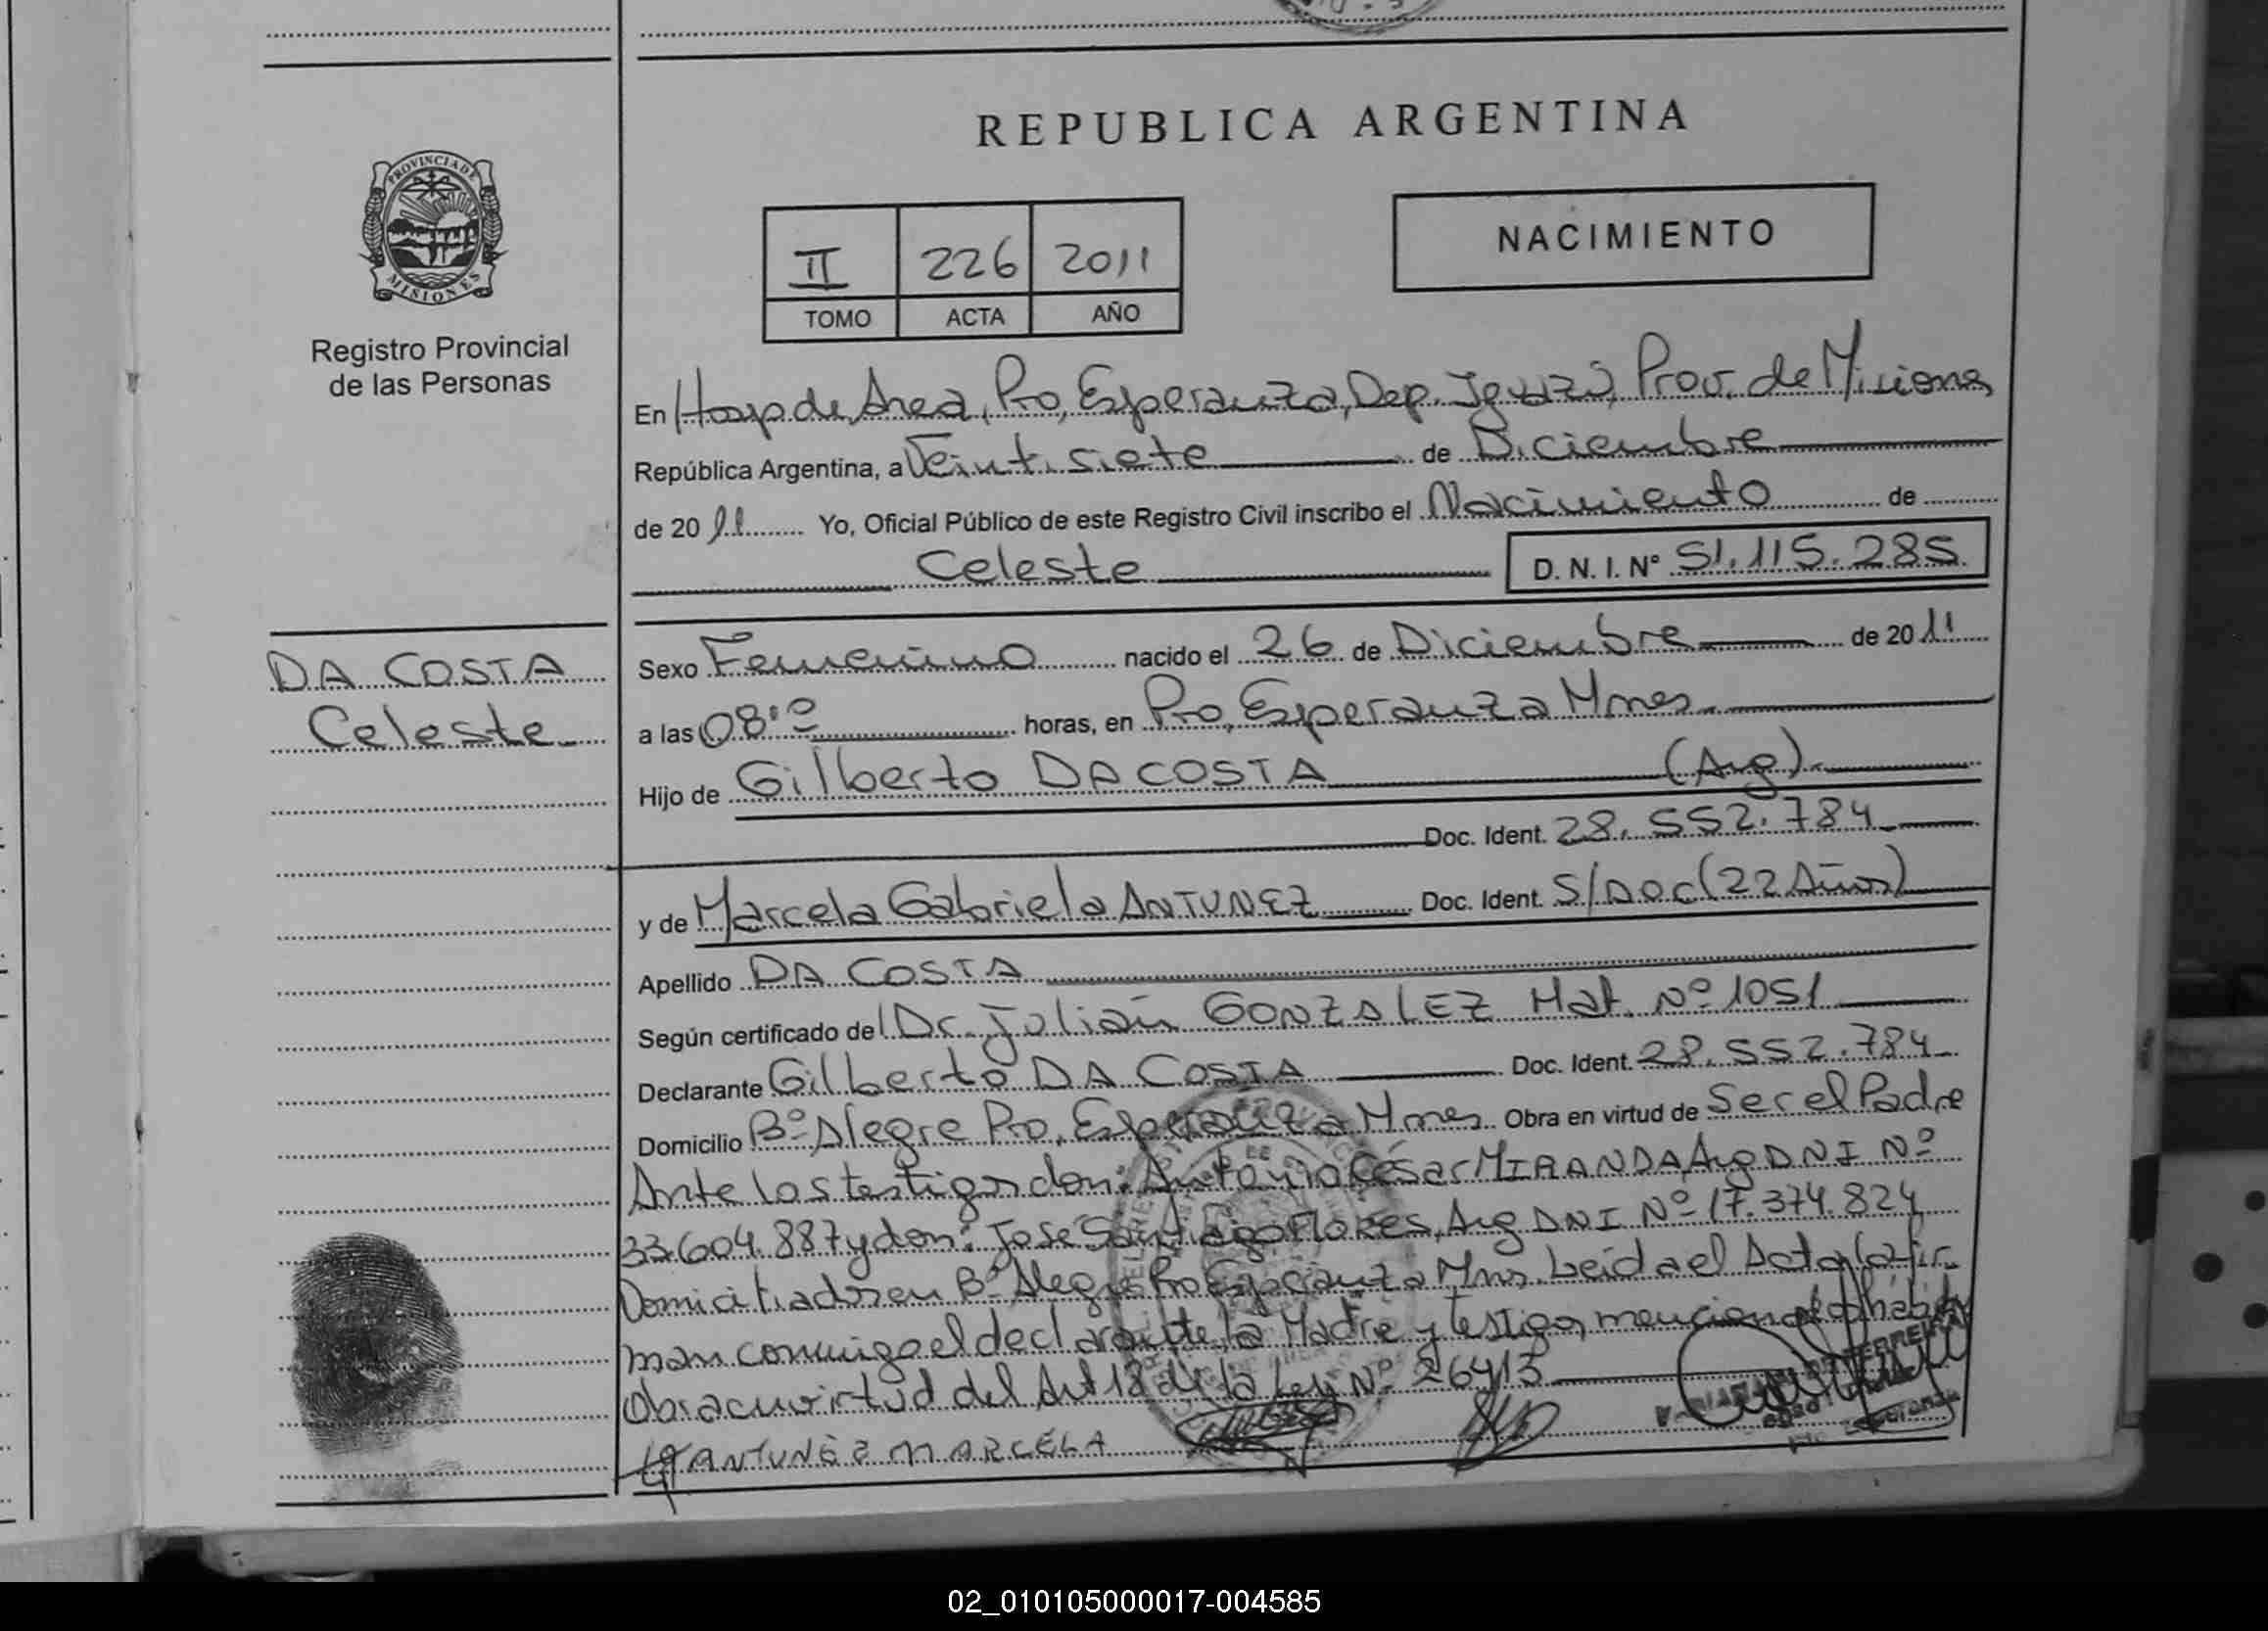 REPUBLICA ARGENTINA
PROVINCIA DE
MISIONES
Registro Provincial
de las Personas
II 226 2011
TOMO ACTA AÑO
NACIMIENTO
En Hosp de Area, Pto, Esperanza, Dep. Iguazú, Prov. de Misiones
República Argentina, a Veintisiete de Diciembre
de 20 11 Yo, Oficial Público de este Registro Civil inscribo el Nacimiento de
Celeste D. N. I. N° 51.115.285
DA COSTA
Celeste
Sexo Femenino nacido el 26 de Diciembre de 20 11
a las 08:º horas, en Pto, Esperanza Mnes.
Hijo de Gilberto DA COSTA (Arg).
Doc. Ident. 28.552.784
y de Marcela Gabriela ANTUNEZ Doc. Ident. S/DOC (22 Años)
Apellido DA COSTA
Según certificado del Dr. Julián GONZALEZ Mat. Nº 1051
Declarante Gilberto DA COSTA Doc. Ident. 28.552.784
Domicilio Bº Alegre Pto, Esperanza Mnes Obra en virtud de Ser el Padre
Ante los testigos don: Antonio César MIRANDA, Arg DNI Nº
33.604.887 y don: José Santiago FLORES, Arg DNI Nº 17.374.824
Domiciliados en Bº Alegre Pto Esperanza Mns. Leida el Acta la fir
man conmigo el declarante, la Madre y testigos mencionados
Obra en virtud del Art 18 de la Ley Nº 26413
ANTUNEZ MARCELA
02_010105000017-004585